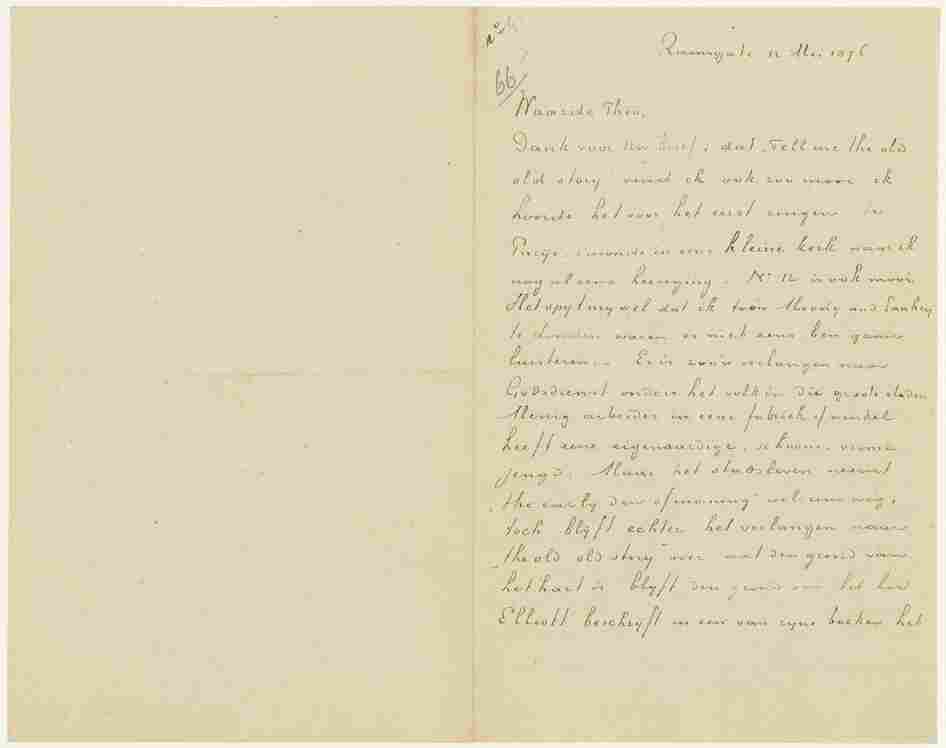 66
Ramsgate 12 Mei 1876
Waarde Theo,
Dank voor Uw brief; dat „Tell me the old
old story” vind ik ook zoo mooi ik
hoorde het voor het eerst zingen in
Parijs, s'avonds in eene kleine kerk waar ik
nog al eens heenging. No 12 is ook mooi.
Het spijt mij wel dat ik toen Moody and Sankey
te Londen waren er niet eens ben gaan
luisteren. Er is zoo'n verlangen naar
Godsdienst onder het volk in die groote steden
Menig arbeider in eene fabriek of winkel
heeft eene eigenaardige, schoone, vrome
jeugd. Maar het stadsleven neemt
„the early dew of morning” wel eens weg,
toch blijft echter het verlangen naar
„the old old story” over wat den grond van
het hart is blijft den grond van het hart
Elliott beschrijft in een van zijne boeken het